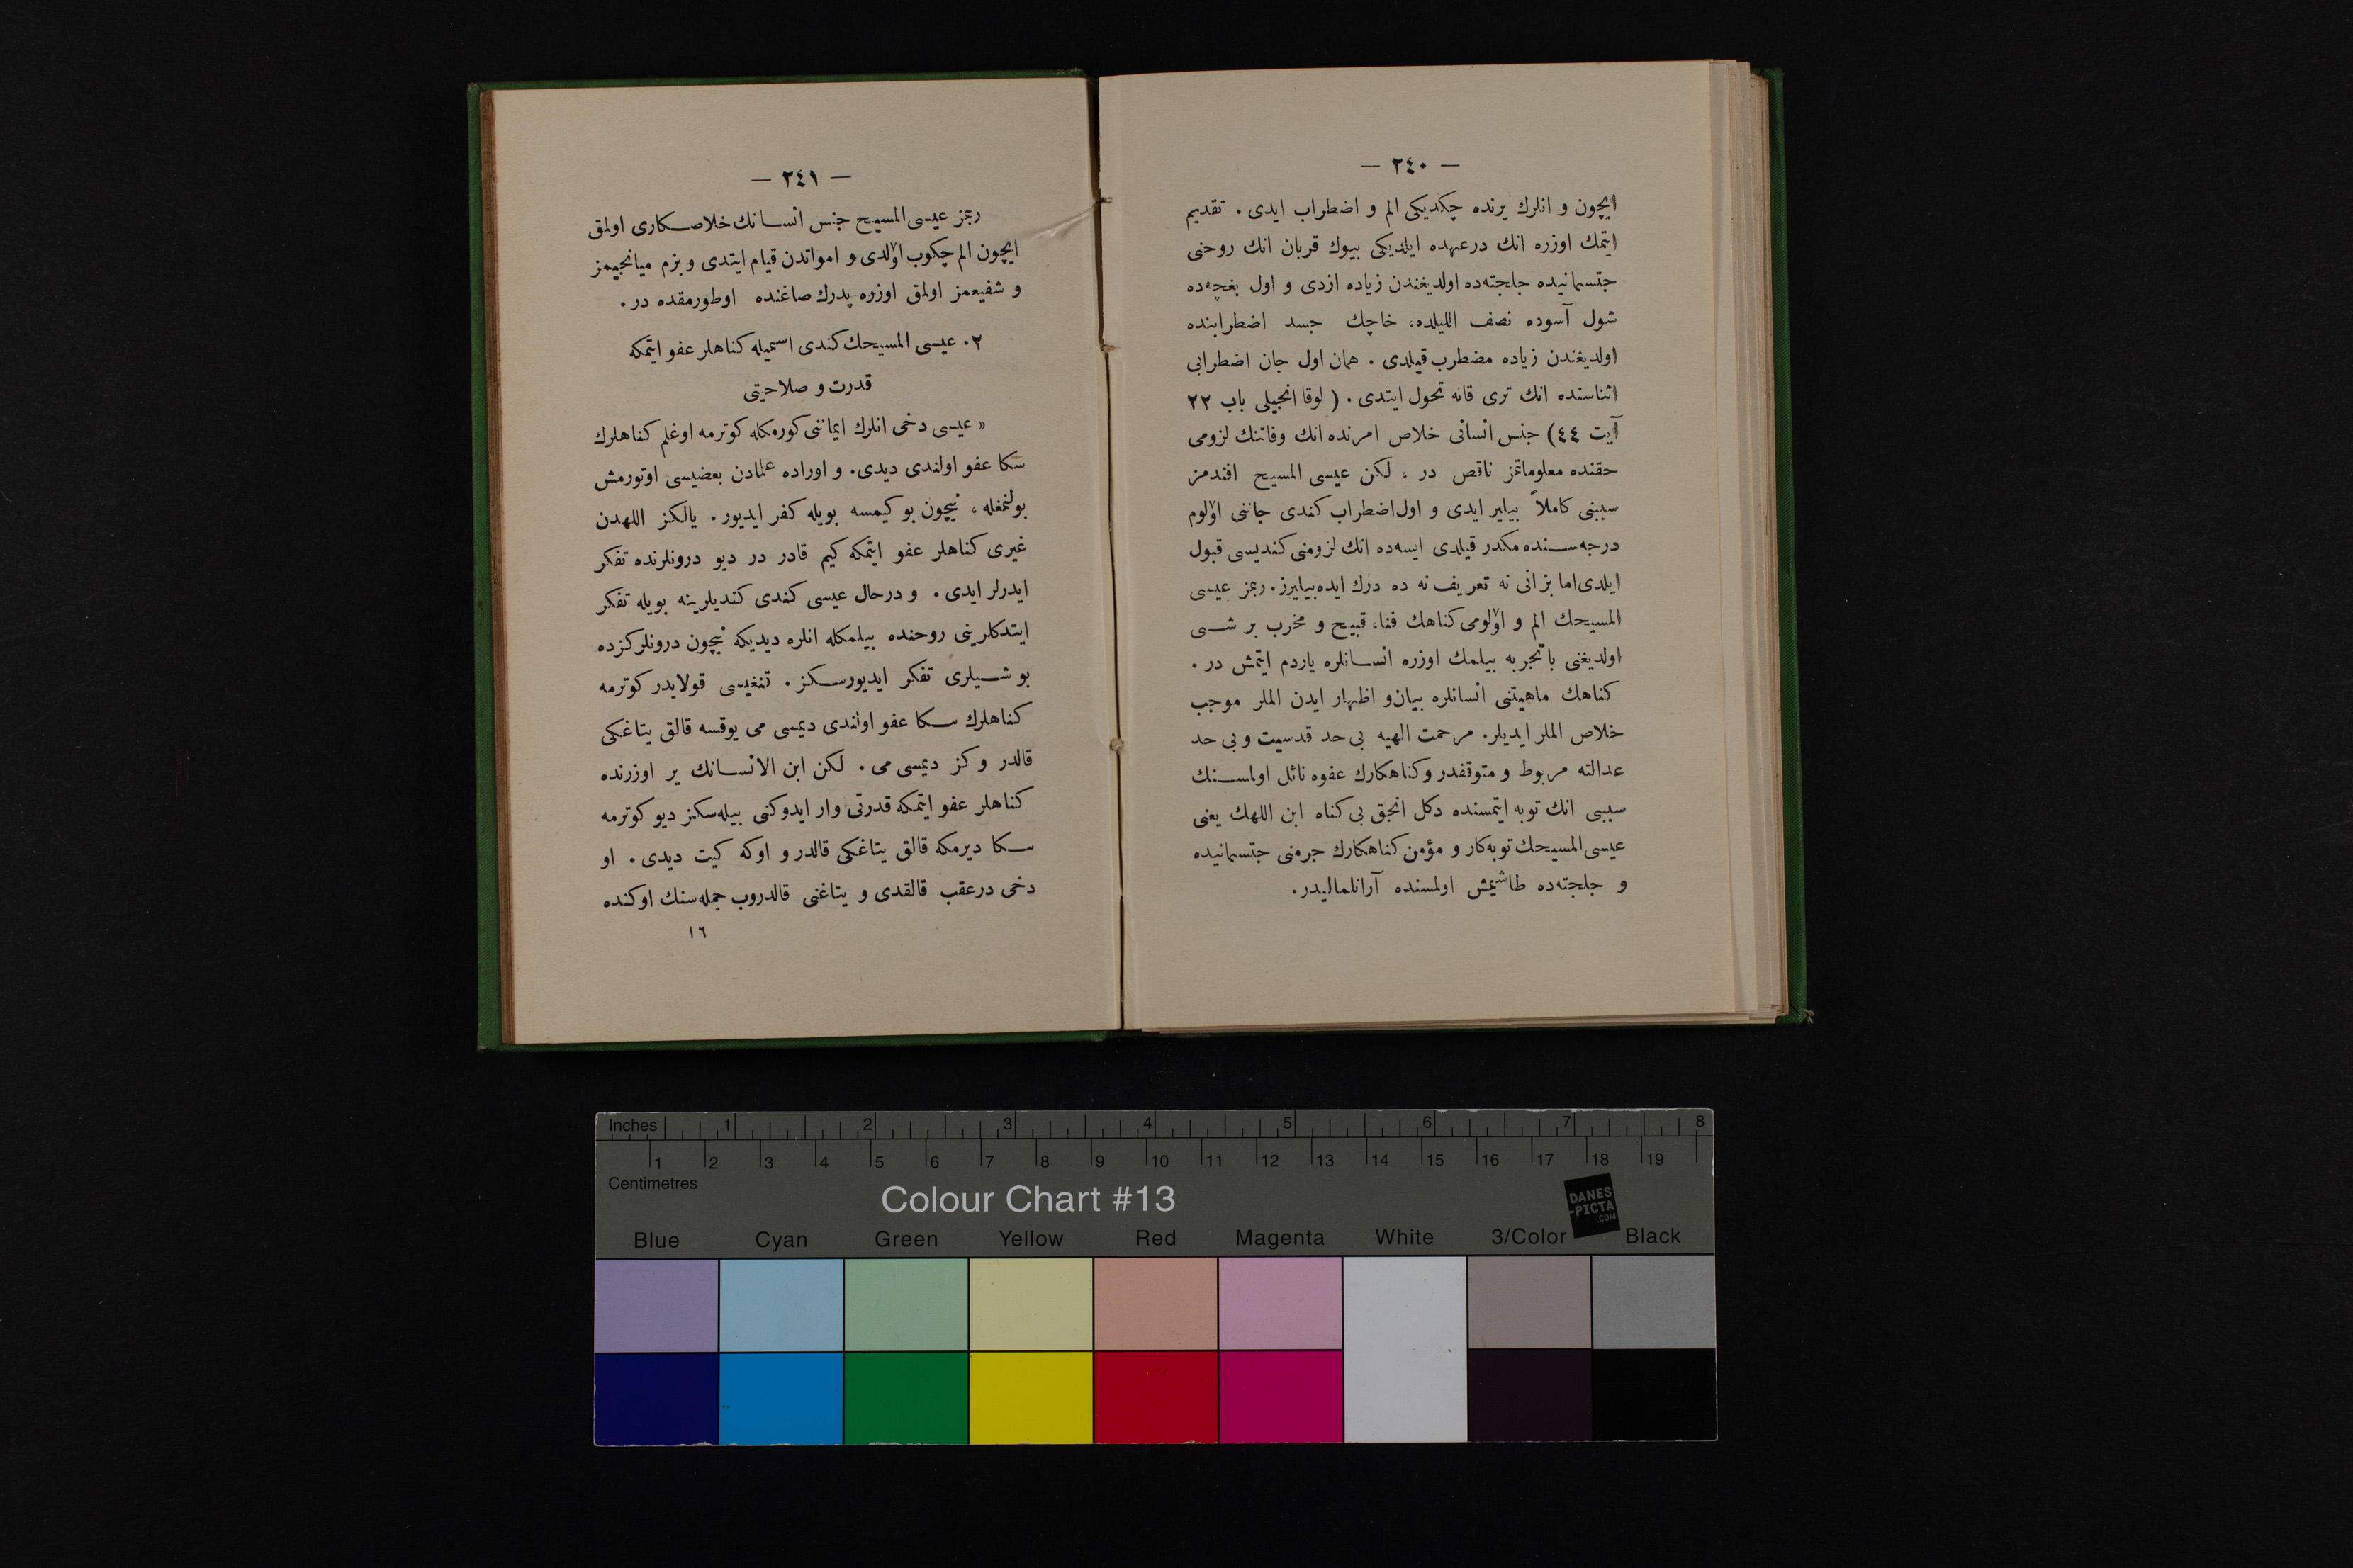 — ٢٤٠ —
ایچون و انلرك یرنده چكدیكی الم و اضطراب ایدی . تقدیم
ایتمك اوزره انك درعهده ایلدیكی بیوك قربان انك روحنی
جتسمانیده جلجته‌ده اولدیغندن زیاده ازدی و اول بغچه‌ده
شول آسوده نصف اللیلده، خاچك جسد اضطرابنده
اولدیغندن زیاده مضطرب قیلدی . همان اول جان اضطرابی
اثناسنده انك تری قانه تحول ایتدی . ( لوقا انجیلی باب ٢٢
آیت ٤٤) جنس انسانی خلاص امرنده انك وفاتنك لزومی
حقنده معلوماتمز ناقص در ، لكن عیسی المسیح افندمز
سببنی كاملاً بیلیر ایدی و اول اضطراب كندی جاننی اوٚلوم
درجه‌سنده مكدر قیلدی ایسه‌ده انك لزومنی كندیسی قبول
ایلدی اما بز انی نه تعریف نه ده درك ایده بیلیرز. ربمز عیسی
المسیحك الم و اوٚلومی كناهك فنا، قبیح و مخرب بر شی
اولدیغنی باتجربه بیلمك اوزره انسانلره یاردم ایتمش در .
كناهك ماهیتنی انسانلره بیان و اظهار ایدن الملر موجب
خلاص الملر ایدیلر. مرحمت الهیه بی حد قدسیت و بی حد
عدالته مربوط و متوقفدر و كناهكارك عفوه نائل اولمسنك
سببی انك توبه ایتمسنده دكل انجق بی كناه ابن اللهك یعنی
عیسی المسیحك توبه‌كار و مؤمن كناهكارك جرمنی جتسمانیده
و جلجته‌ده طاشیمش اولمسنده آرانلمالیدر.
— ٢٤١ —
ربمز عیسی المسیح جنس انسانك خلاصكاری اولمق
ایچون الم چكوب اوٚلدی و امواتدن قیام ایتدی و بزم میانجیمز
و شفیعمز اولمق اوزره پدرك صاغنده اوطورمقده در .
٢. عیسی المسیحك كندی اسمیله كناهلر عفو ایتمكه
قدرت و صلاحیتی
« عیسی دخی انلرك ایماننی كورمكله كوترمه اوغلم كناهلرك
سكا عفو اولندی دیدی. و اوراده علمادن بعضیسی اوتورمش
بولنمغله ، نیچون بو كیمسه بویله كفر ایدیور . یالكز اللهدن
غیری كناهلر عفو ایتمكه كیم قادر در دیو درونلرنده تفكر
ایدرلر ایدی . و درحال عیسی كندی كندیلرینه بویله تفكر
ایتدكلرینی روحنده بیلمكله انلره دیدیكه نیچون درونلركزده
بو شیلری تفكر ایدیورسكز . تنغیسی قولایدر كوترمه
كناهلرك سكا عفو اولندی دیمسی می یوقسه قالق یتاغكی
قالدر و كز دیمسی می . لكن ابن الانسانك یر اوزرنده
كناهلر عفو ایتمكه قدرتی وار ایدوكنی بیله‌سكز دیو كوترمه
سكا دیرمكه قالق یتاغكی قالدر و اوكه كیت دیدی . او
دخی درعقب قالقدی و یتاغنی قالدروب جمله‌سنك اوكنده
١٦
Inches 1 2 3 4 5 6 7 8
1 2 3 4 5 6 7 8 9 10 11 12 13 14 15 16 17 18 19
Centimetres
Colour Chart #13
DANES
-PICTA
.COM
Blue Cyan Green Yellow Red Magenta White 3/Color Black